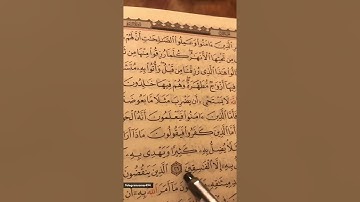 الَّذِينَ ءَامَنُوا وَعَمِلُوا الصَّـٰلِحَـٰتِ أَنَّ لَهُمْ
مِن تَحْتِهَا الْأَنْهَـٰرُ كُلَّمَا رُزِقُوا مِنْهَا مِن
هَـٰذَا الَّذِى رُزِقْنَا مِن قَبْلُ وَأُتُوا بِهِ مُتَشَـٰ
أَزْوَٰجٌ مُّطَهَّرَةٌ وَهُمْ فِيهَا خَـٰلِدُونَ
لَا يَسْتَحْىِۦ أَن يَضْرِبَ مَثَلًا مَّا بَعُوضَةً
الَّذِينَ ءَامَنُوا فَيَعْلَمُونَ أَنَّهُ الْحَ
الَّذِينَ كَفَرُوا فَيَقُولُونَ مَاذَا أَرَا
يُضِلُّ بِهِ كَثِيرًا وَيَهْدِى بِهِ
بِهِ إِلَّا الْفَـٰسِقِينَ ٢٦ الَّذِينَ يَنقُضُونَ
مَا أَمَرَ اللَّهُ بِهِ أَن